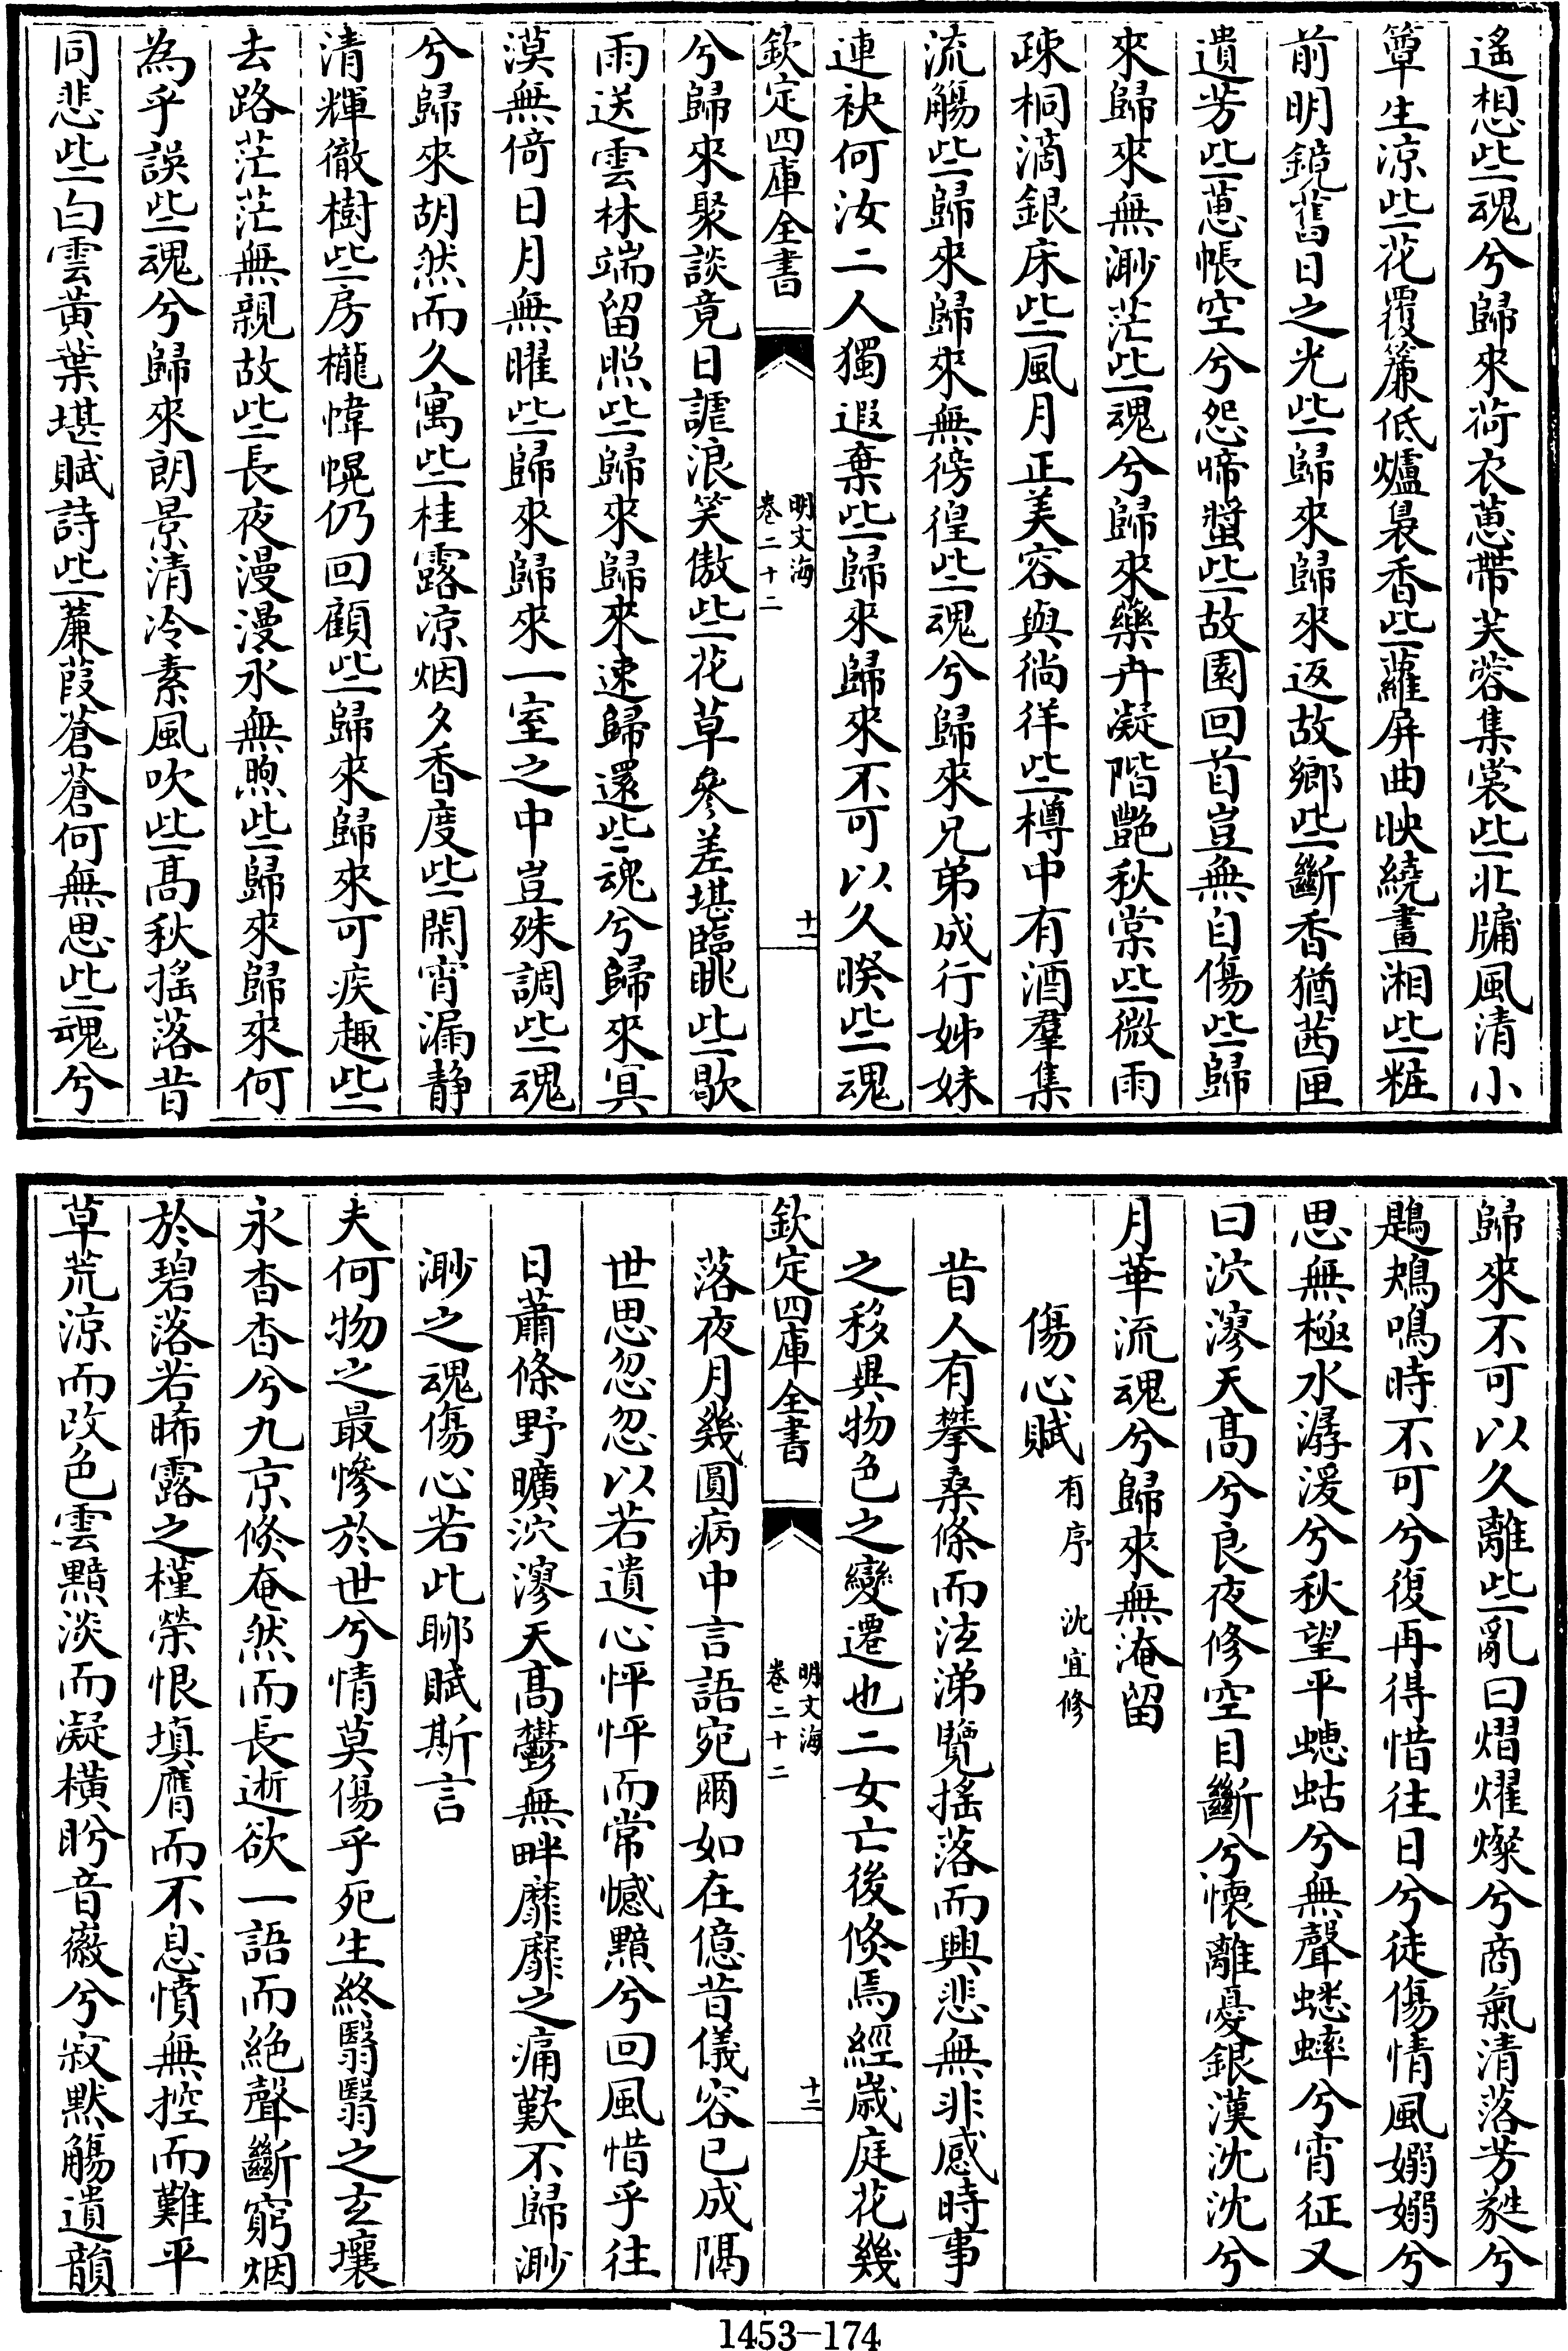 遙想些魂兮歸來荷衣蕙帶芙蓉集裳些北牖風清小
簟生涼些花覆簾低爐裊香些蘿屏曲映繞畫湘些粧
前明鏡舊日之光些歸來歸來返故鄉些斷香猶茜匣
遺芳些蕙帳空兮怨啼螿些故園回首豈無自傷些歸
來歸來無渺茫些魂兮歸來藥卉凝階艷秋棠些微雨
疎桐滴銀床些風月正美容與徜徉些樽中有酒羣集
流觴些歸來歸來無徬徨些魂兮歸來兄弟成行姊妹
連袂何汝二人獨遐棄些歸來歸來不可以久睽些魂
欽定四庫全書
明文海
卷二十二
十一
兮歸來聚談竟日謔浪笑傲些花草參差堪臨眺些歇
雨送雲林端留照些歸來歸來速歸還些魂兮歸來冥
漠無倚日月無曜些歸來歸來一室之中豈殊調些魂
兮歸來胡然而久寓些桂露凉烟夕香度些閑宵漏靜
清輝徹樹些房櫳幃幌仍回顧些歸來歸來可疾趣些
去路茫茫無親故些長夜漫漫永無煦些歸來歸來何
為乎誤些魂兮歸來朗景清冷素風吹些高秋搖落昔
同悲些白雲黃葉堪賦詩些蒹葭蒼蒼何無思些魂兮
歸來不可以久離些亂曰熠燿燦兮商氣清落芳蕤兮
鶗鴂鳴時不可兮復再得惜往日兮徒傷情風嫋嫋兮
思無極水潺湲兮秋望平蟪蛄兮無聲蟋蟀兮宵征又
曰泬漻天高兮良夜修空目斷兮懷離憂銀漢沈沈兮
月華流魂兮歸來無淹留
傷心賦 有序 沈宜修
昔人有攀桑條而泫涕覽搖落而興悲無非感時事
之移與物色之變遷也二女亡後倏焉經歲庭花幾
欽定四庫全書
明文海
卷二十二
十二
落夜月幾圓病中言語宛爾如在億昔儀容已成隔
世思忽忽以若遺心怦怦而常憾黯兮回風惜乎往
日蕭條野曠泬漻天高鬱無畔靡靡之痛歎不歸渺
渺之魂傷心若此聊賦斯言
夫何物之最慘於世兮情莫傷乎死生終翳翳之玄壤
永杳杳兮九京倏奄然而長逝欲一語而絶聲斷窮烟
於碧落若晞露之槿榮恨填膺而不息憤無控而難平
草荒涼而改色雲黯淡而凝橫盻音徽兮寂默觴遺韻
1453-174